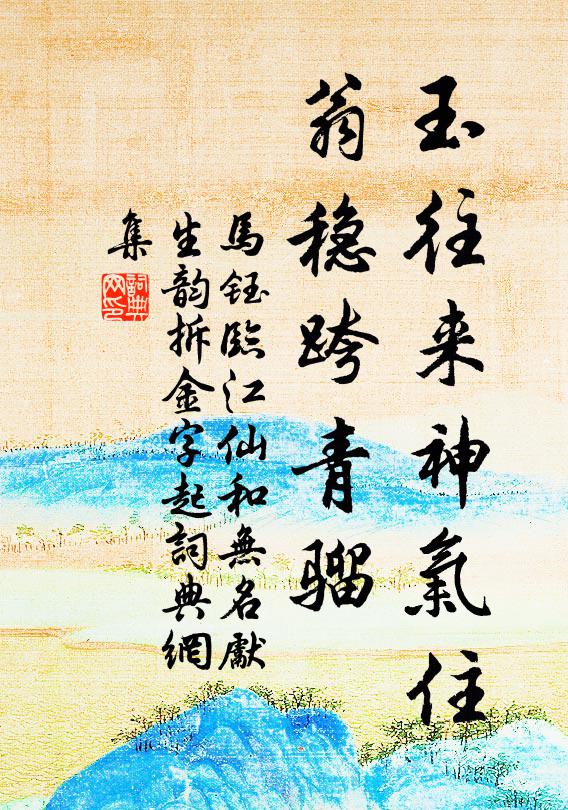 玉往来神氣住
翁稳跨青骝
馬钰臨江仙和無名獻
生韵拆金字起詞典網
集
詞典
网印